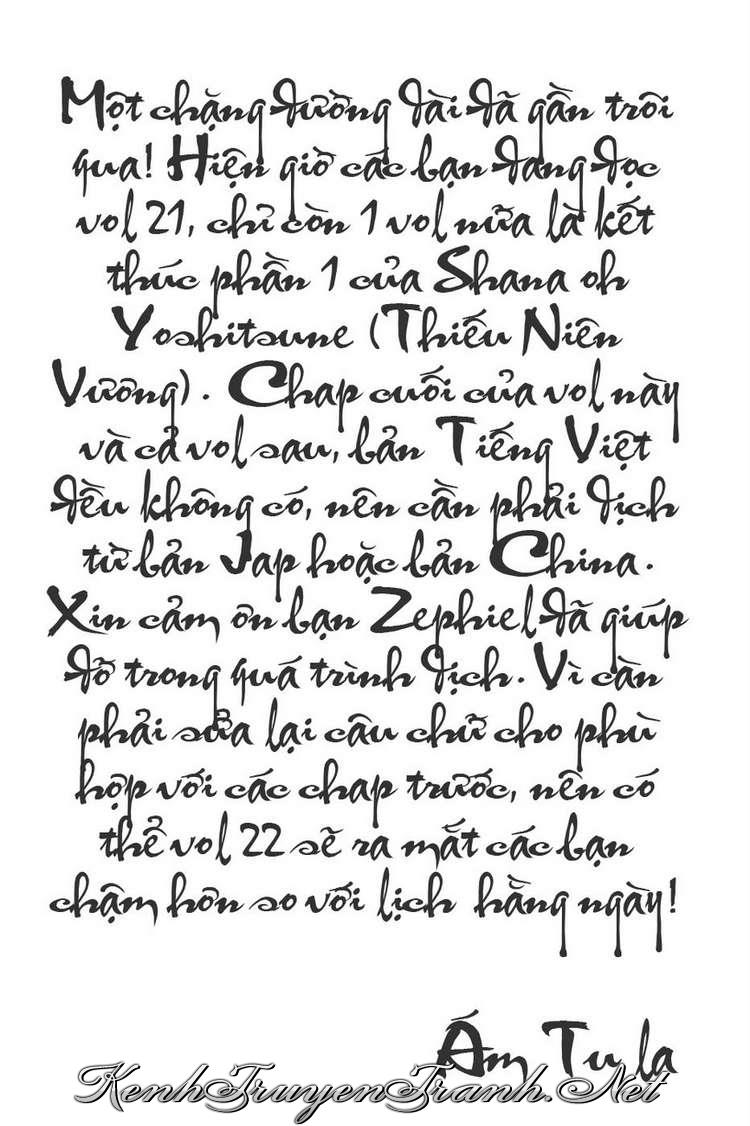 Một chặng đường dài đã gần trôi
qua! Hiện giờ các bạn đang đọc
vol 21, chỉ còn 1 vol nữa là kết
thúc phần 1 của Shana oh
Yoshitsune (Thiếu Niên
Vương). Chap cuối của vol này
và cả vol sau, bản Tiếng Việt
đều không có, nên cần phải dịch
từ bản Jap hoặc bản China.
Xin cảm ơn bạn Zephiel đã giúp
đỡ trong quá trình dịch. Vì cần
phải sửa lại câu chữ cho phù
hợp với các chap trước, nên có
thể vol 22 sẽ ra mắt các bạn
chậm hơn so với lịch hằng ngày!
Ám Tu la
KenhTruyenTranh.Net